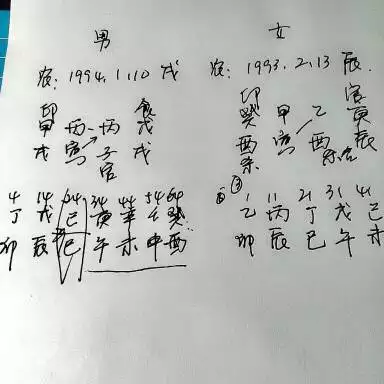 男 女
农: 1994.1.10 戌 农: 1993.2.13 辰
印 食 印 官
甲 丙 丙 戊 癸 甲 乙 庚
戌 寅 子 戌 酉 寅 酉 辰
官 杀 杀
4 14 24 34 44 54 64 1 11 21 31 41
丁 戊 己 庚 辛 壬 癸 乙 丙 丁 戊 己
卯 辰 巳 午 未 申 酉 卯 辰 巳 午 未